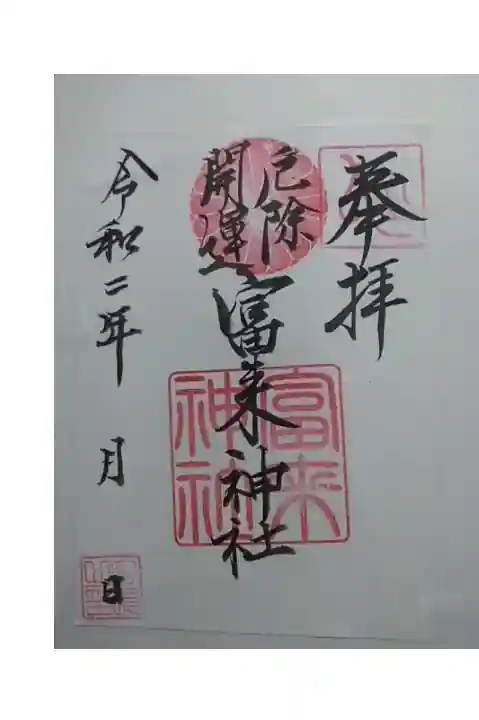 奉拝
厄除
開運
富来神社
富来
神社
令和二年 月 日